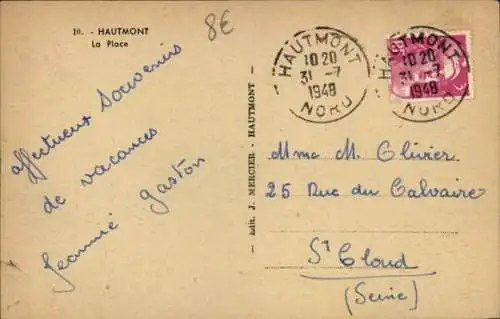 10. - HAUTMONT
La Place
8€
affectueux Souvenirs
de vacances
Jeanne Gaston
Edit. J. MERCIER - HAUTMONT -
HAUTMONT
10 20
31 -7
1948
NORD
HAUTMONT
10 20
31 -7
1948
NORD
Mme M. Olivier
25 Rue du Calvaire
St Cloud
(Seine)